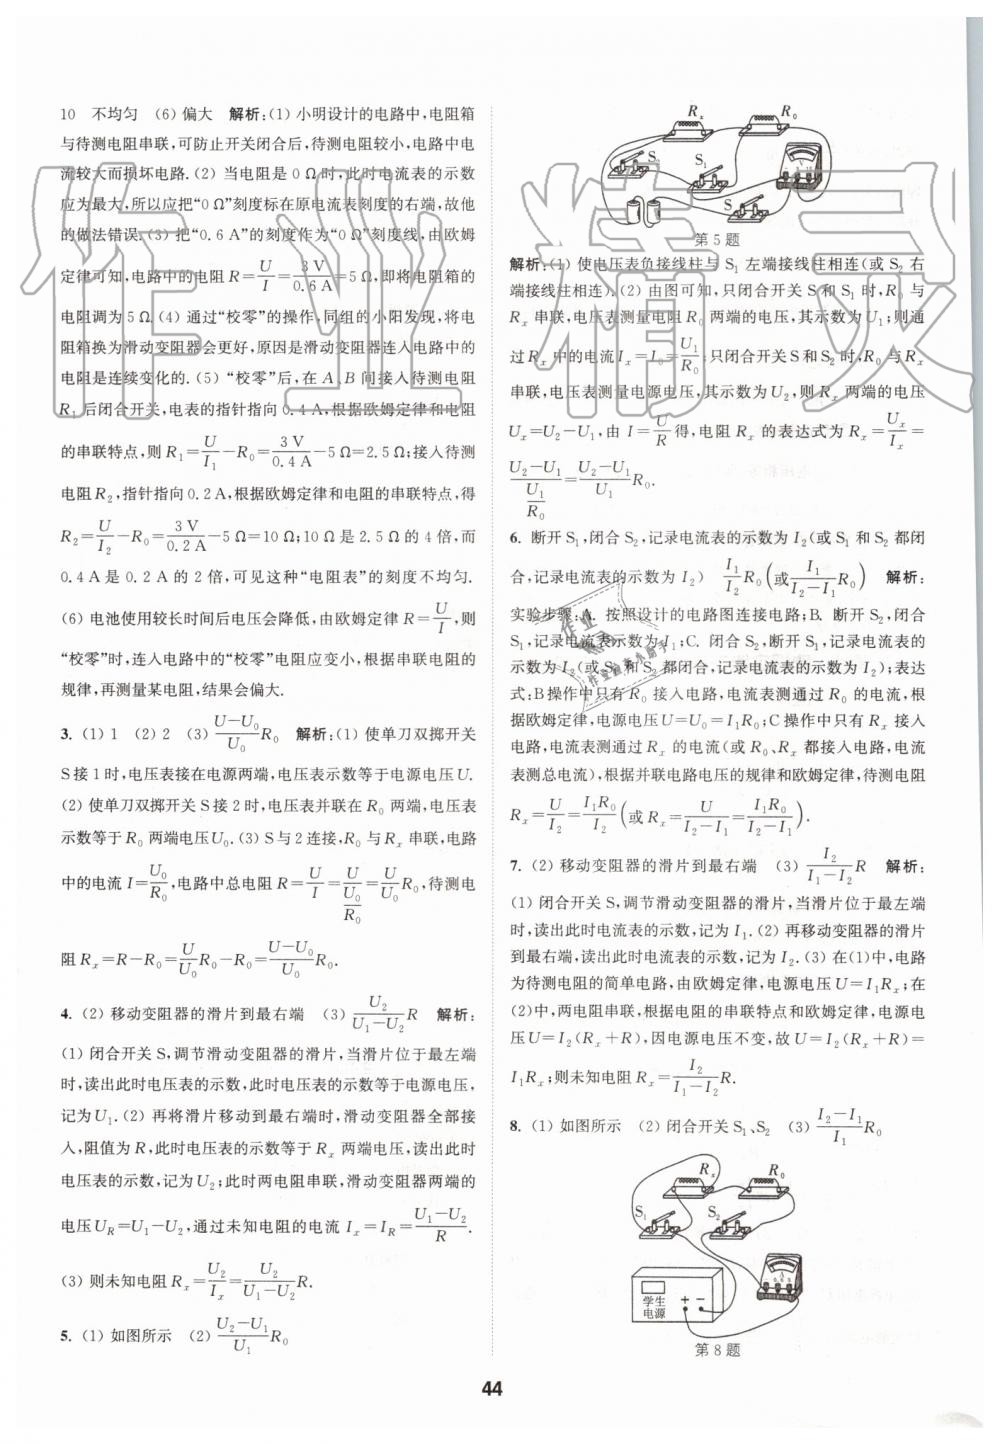 10 不均匀 (6) 偏大 解析:(1) 小明设计的电路中,电阻箱
与待测电阻串联,可防止开关闭合后,待测电阻较小,电路中电
流较大而损坏电路.(2) 当电阻是 0 Ω 时,此时电流表的示数
应为最大,所以应把“0 Ω”刻度标在原电流表刻度的右端,故他
的做法错误.(3) 把“0.6 A”的刻度作为“0 Ω”刻度线,由欧姆
定律可知,电路中的电阻 R=U/I=3 V/0.6 A=5 Ω,即将电阻箱的
电阻调为 5 Ω.(4) 通过“校零”的操作,同组的小阳发现,将电
阻箱换为滑动变阻器会更好,原因是滑动变阻器连入电路中的
电阻是连续变化的.(5) “校零”后,在 A、B 间接入待测电阻
R₁ 后闭合开关,电表的指针指向 0.4 A,根据欧姆定律和电阻
的串联特点,则 R₁=U/I₁-R₀=3 V/0.4 A-5 Ω=2.5 Ω;接入待测
电阻 R₂,指针指向 0.2 A,根据欧姆定律和电阻的串联特点,得
R₂=U/I₂-R₀=3 V/0.2 A-5 Ω=10 Ω;10 Ω 是 2.5 Ω 的 4 倍,而
0.4 A 是 0.2 A 的 2 倍,可见这种“电阻表”的刻度不均匀.
(6) 电池使用较长时间后电压会降低,由欧姆定律 R=U/I,则
“校零”时,连入电路中的“校零”电阻应变小,根据串联电阻的
规律,再测量某电阻,结果会偏大.
3. (1) 1 (2) 2 (3) (U-U₀)/U₀ R₀ 解析:(1) 使单刀双掷开关
S 接 1 时,电压表接在电源两端,电压表示数等于电源电压 U.
(2) 使单刀双掷开关 S 接 2 时,电压表并联在 R₀ 两端,电压表
示数等于 R₀ 两端电压 U₀.(3) S 与 2 连接,R₀ 与 Rₓ 串联,电路
中的电流 I=U₀/R₀,电路中总电阻 R=U/I=U/(U₀/R₀)=U/U₀ R₀,待测电
阻 Rₓ=R-R₀=U/U₀ R₀-R₀=(U-U₀)/U₀ R₀.
4. (2) 移动变阻器的滑片到最右端 (3) U₂/(U₁-U₂) R 解析:
(1) 闭合开关 S,调节滑动变阻器的滑片,当滑片位于最左端
时,读出此时电压表的示数,此时电压表的示数等于电源电压,
记为 U₁.(2) 再将滑片移动到最右端时,滑动变阻器全部接
入,阻值为 R,此时电压表的示数等于 Rₓ 两端电压,读出此时
电压表的示数,记为 U₂;此时两电阻串联,滑动变阻器两端的
电压 U_R=U₁-U₂,通过未知电阻的电流 Iₓ=I_R=(U₁-U₂)/R.
(3) 则未知电阻 Rₓ=U₂/Iₓ=U₂/(U₁-U₂) R.
5. (1) 如图所示 (2) (U₂-U₁)/U₁ R₀
Rₓ R₀
S₂ S₁
S
第 5 题
解析:(1) 使电压表负接线柱与 S₁ 左端接线柱相连(或 S₂ 右
端接线柱相连).(2) 由图可知,只闭合开关 S 和 S₁ 时,R₀ 与
Rₓ 串联,电压表测量电阻 R₀ 两端的电压,其示数为 U₁;则通
过 Rₓ 中的电流 Iₓ=I₀=U₁/R₀;只闭合开关 S 和 S₂ 时,R₀ 与 Rₓ
串联,电压表测量电源电压,其示数为 U₂,则 Rₓ 两端的电压
Uₓ=U₂-U₁,由 I=U/R 得,电阻 Rₓ 的表达式为 Rₓ=Uₓ/Iₓ=
(U₂-U₁)/(U₁/R₀)=(U₂-U₁)/U₁ R₀.
6. 断开 S₁,闭合 S₂,记录电流表的示数为 I₂(或 S₁ 和 S₂ 都闭
合,记录电流表的示数为 I₂) I₁/I₂ R₀(或 I₁/(I₂-I₁) R₀) 解析:
实验步骤:A. 按照设计的电路图连接电路;B. 断开 S₂,闭合
S₁,记录电流表示数为 I₁;C. 闭合 S₂,断开 S₁,记录电流表的
示数为 I₂(或 S₁ 和 S₂ 都闭合,记录电流表的示数为 I₂);表达
式:B 操作中只有 R₀ 接入电路,电流表测通过 R₀ 的电流,根
据欧姆定律,电源电压 U=U₀=I₁R₀;C 操作中只有 Rₓ 接入
电路,电流表测通过 Rₓ 的电流(或 R₀、Rₓ 都接入电路,电流
表测总电流),根据并联电路电压的规律和欧姆定律,待测电阻
Rₓ=U/I₂=I₁R₀/I₂(或 Rₓ=U/(I₂-I₁)=I₁R₀/(I₂-I₁)).
7. (2) 移动变阻器的滑片到最右端 (3) I₂/(I₁-I₂) R 解析:
(1) 闭合开关 S,调节滑动变阻器的滑片,当滑片位于最左端
时,读出此时电流表的示数,记为 I₁.(2) 再移动变阻器的滑片
到最右端,读出此时电流表的示数,记为 I₂.(3) 在(1)中,电路
为待测电阻的简单电路,由欧姆定律,电源电压 U=I₁Rₓ;在
(2)中,两电阻串联,根据电阻的串联特点和欧姆定律,电源电
压 U=I₂(Rₓ+R),因电源电压不变,故 U=I₂(Rₓ+R)=
I₁Rₓ;则未知电阻 Rₓ=I₂/(I₁-I₂) R.
8. (1) 如图所示 (2) 闭合开关 S₁、S₂ (3) (I₂-I₁)/I₁ R₀
Rₓ R₀
S₁ S₂
学生
电源
+ -
第 8 题
44
作业精灵